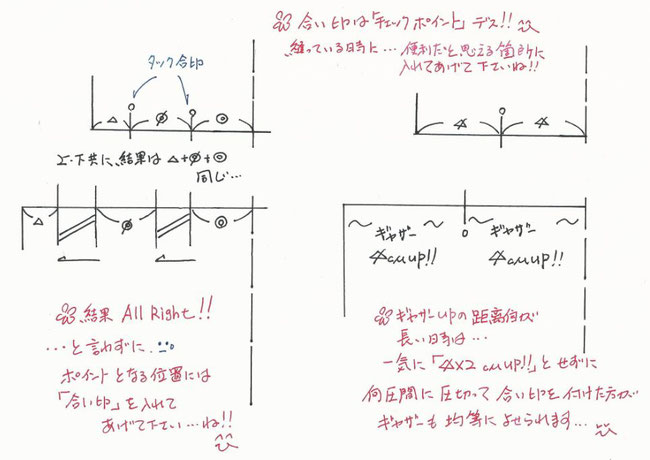 合い印は「チェックポイント」デス!!
縫っている時に… 便利だと思える箇所に
入れてあげて下さいね!!
タック合印
△ ⌀ ◎
上・下共に、結果は △+⌀+◎
同じ…
△ ⌀ ◎
結果 All Right!!
…と言わずに…
ポイントとなる位置には
「合い印」を入れて
あげて下さい…ね!!
∡ ∡
ギャザー ギャザー
∡cm up!! ∡cm up!!
ギャザーupの距離が
長い時は…
一気に「∡×2 cm up!!」とせずに
何区間に区切って合い印を付けた方が
ギャザーも均等によせられます…